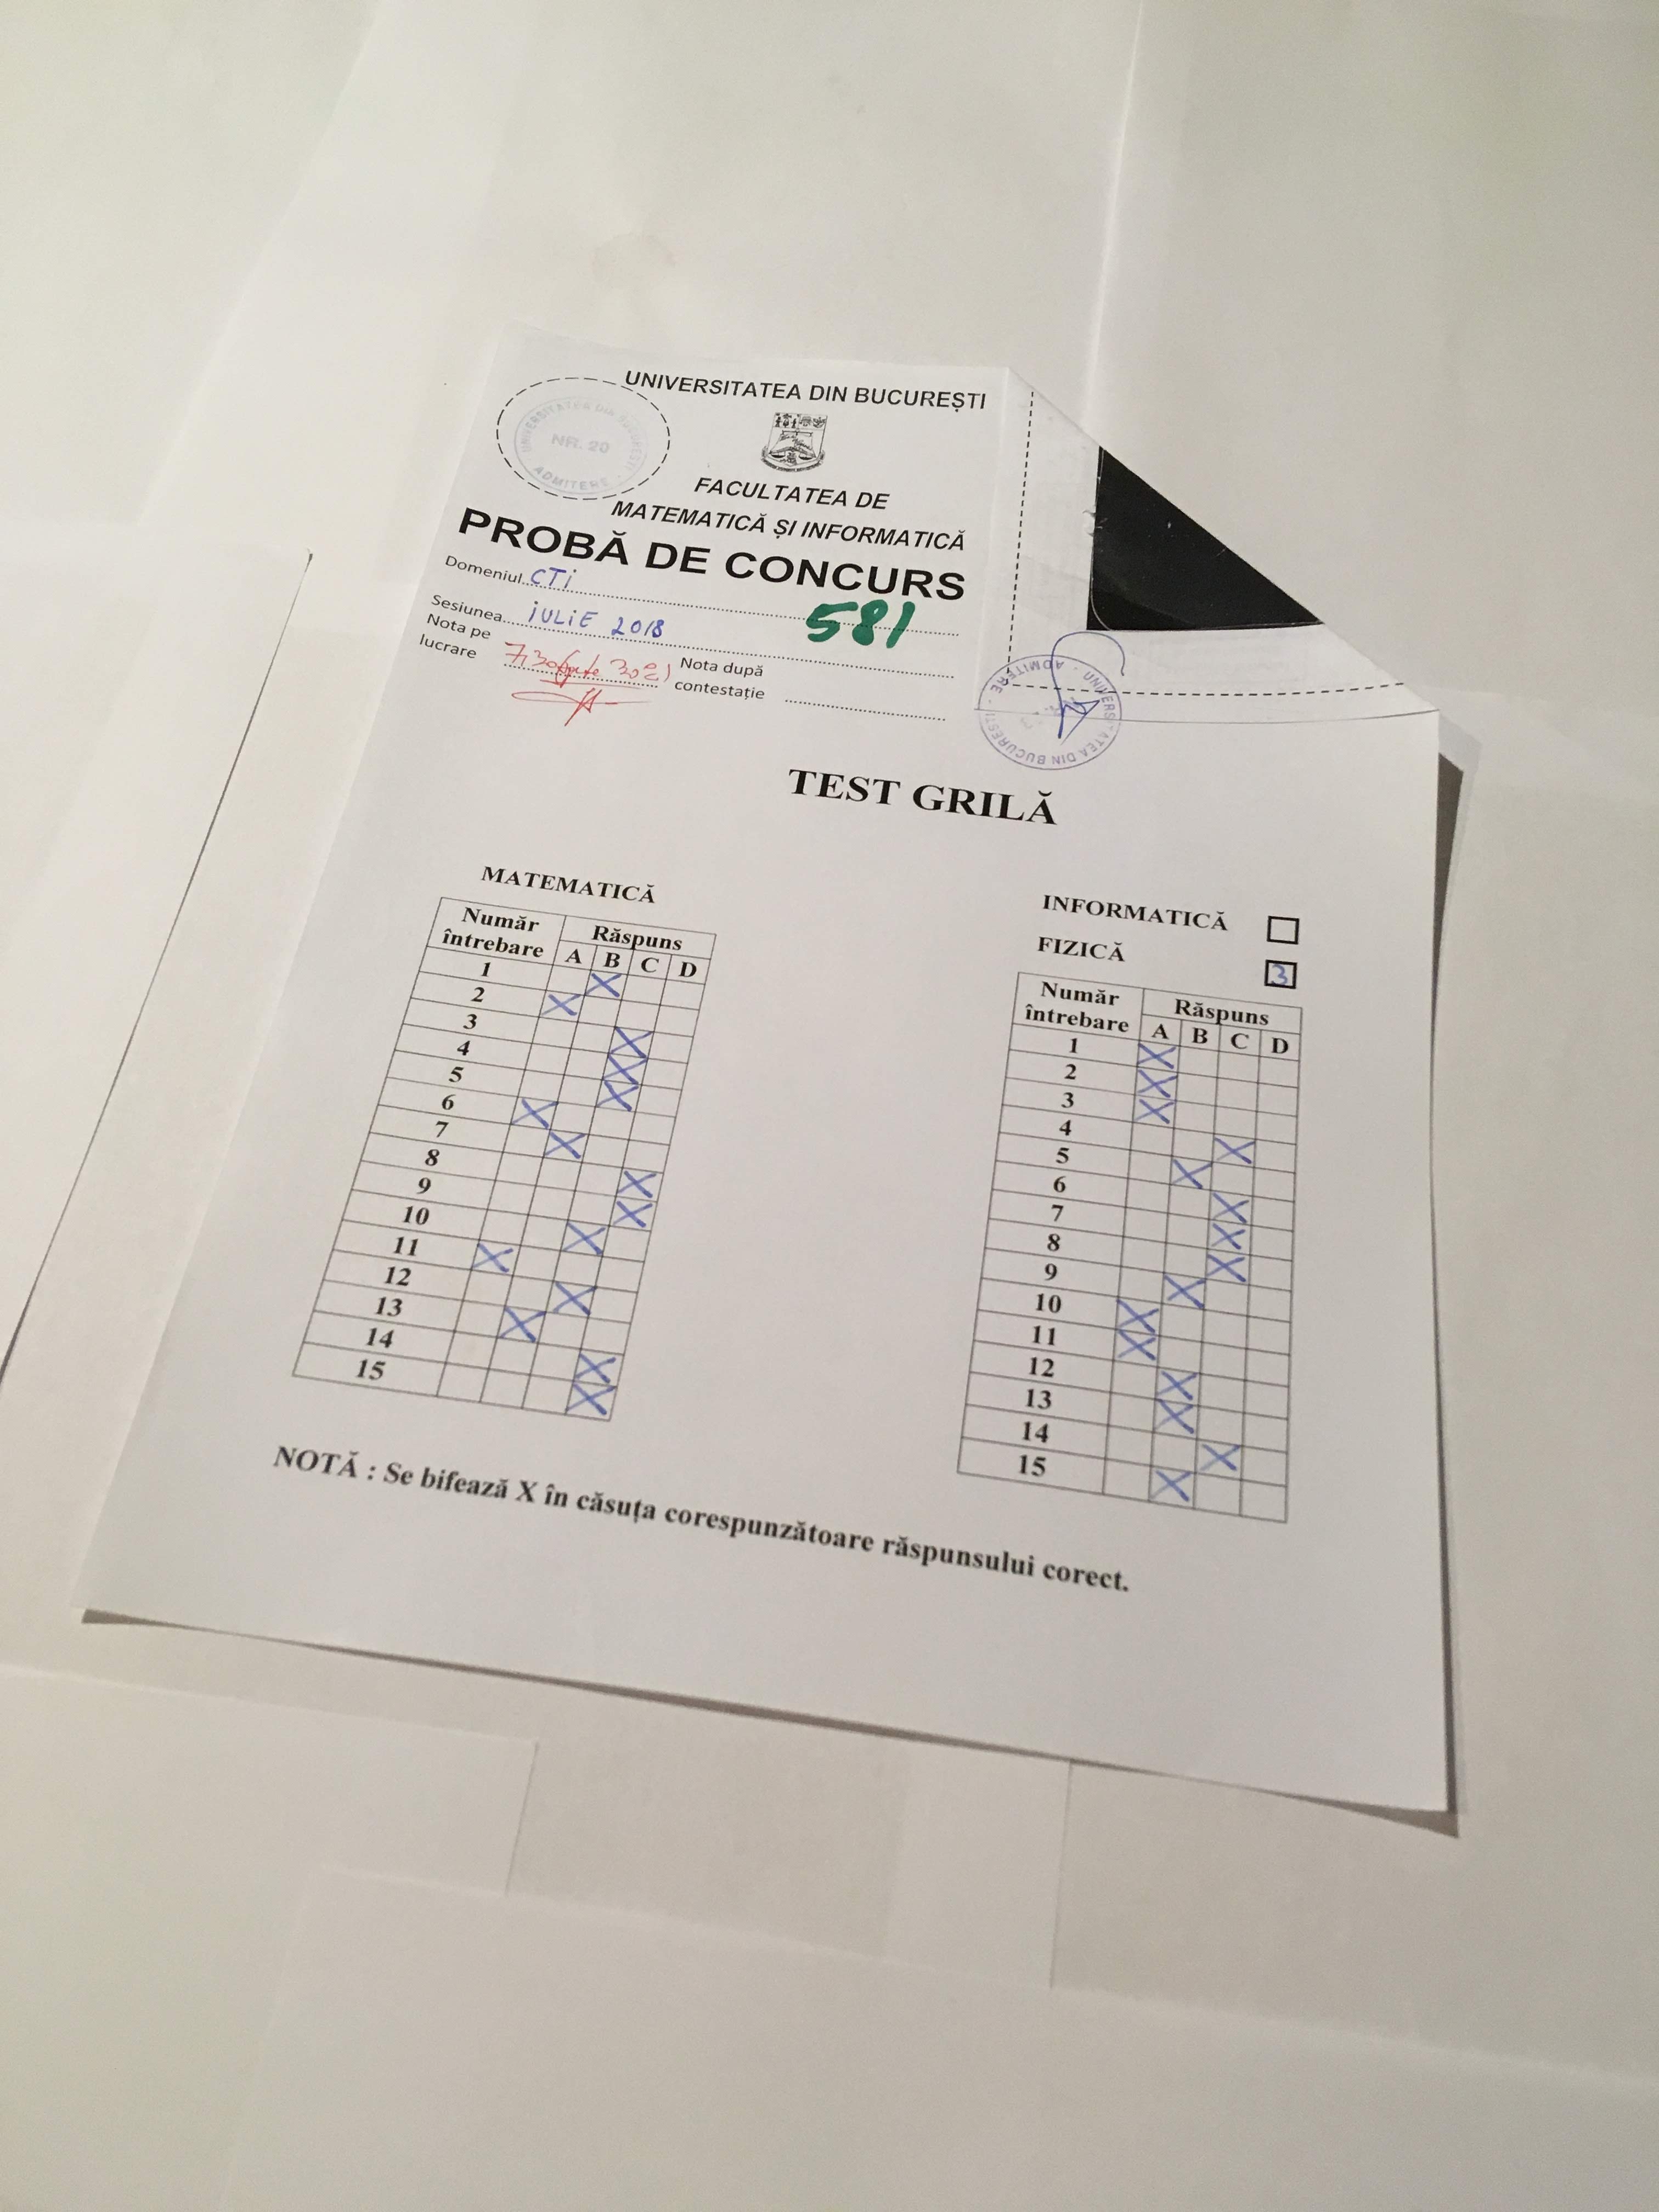 UNIVERSITATEA DIN BUCUREȘTI
UNIVERSITATEA DIN BUCUREȘTI
NR. 20
ADMITERE
FACULTATEA DE
MATEMATICĂ ȘI INFORMATICĂ
PROBĂ DE CONCURS
Domeniul CTi
581
Sesiunea iULiE 2018
Nota pe lucrare 7,30 (șapte 30%)
Nota după contestație
UNIVERSITATEA DIN BUCUREȘTI · ADMITERE ·
TEST GRILĂ
MATEMATICĂ
Număr întrebare Răspuns
A B C D
1 X
2 X
3 X
4 X
5 X
6 X
7 X
8 X
9 X
10 X
11 X
12 X
13 X
14 X
15 X
INFORMATICĂ
FIZICĂ 3
Număr întrebare Răspuns
A B C D
1 X
2 X
3 X
4 X
5 X
6 X
7 X
8 X
9 X
10 X
11 X
12 X
13 X
14 X
15 X
NOTĂ : Se bifează X în căsuța corespunzătoare răspunsului corect.